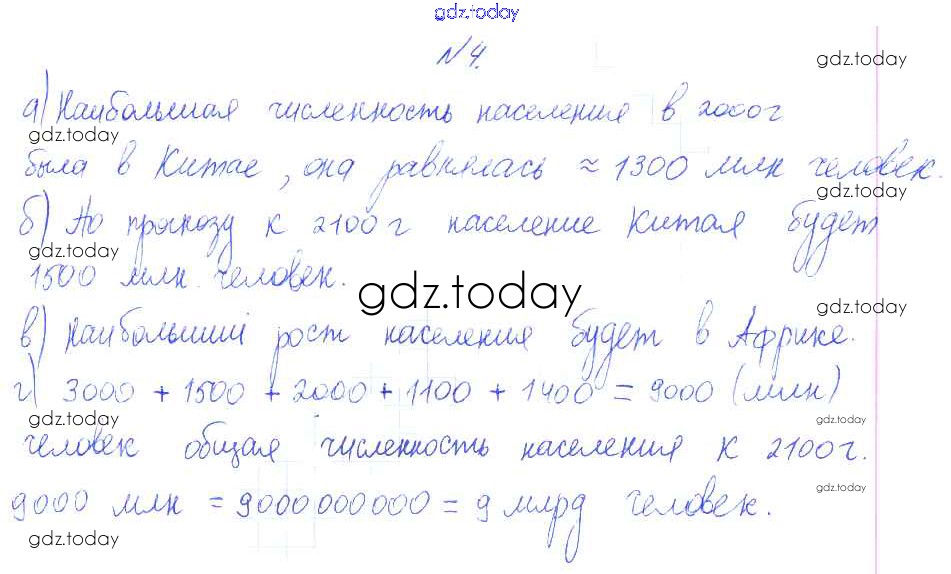 gdz.today
№4.
gdz.today
а) Наибольшая численность населения в 2000г
gdz.today
была в Китае, она равнялась ≈ 1300 млн человек.
gdz.today
б) По прогнозу к 2100г население Китая будет
gdz.today
1500 млн. человек.
gdz.today
gdz.today
в) Наибольший рост населения будет в Африке.
г) 3000 + 1500 + 2000 + 1100 + 1400 = 9000 (млн)
gdz.today
gdz.today
человек общая численность населения к 2100г.
gdz.today
9000 млн = 9000000000 = 9 млрд человек.
gdz.today